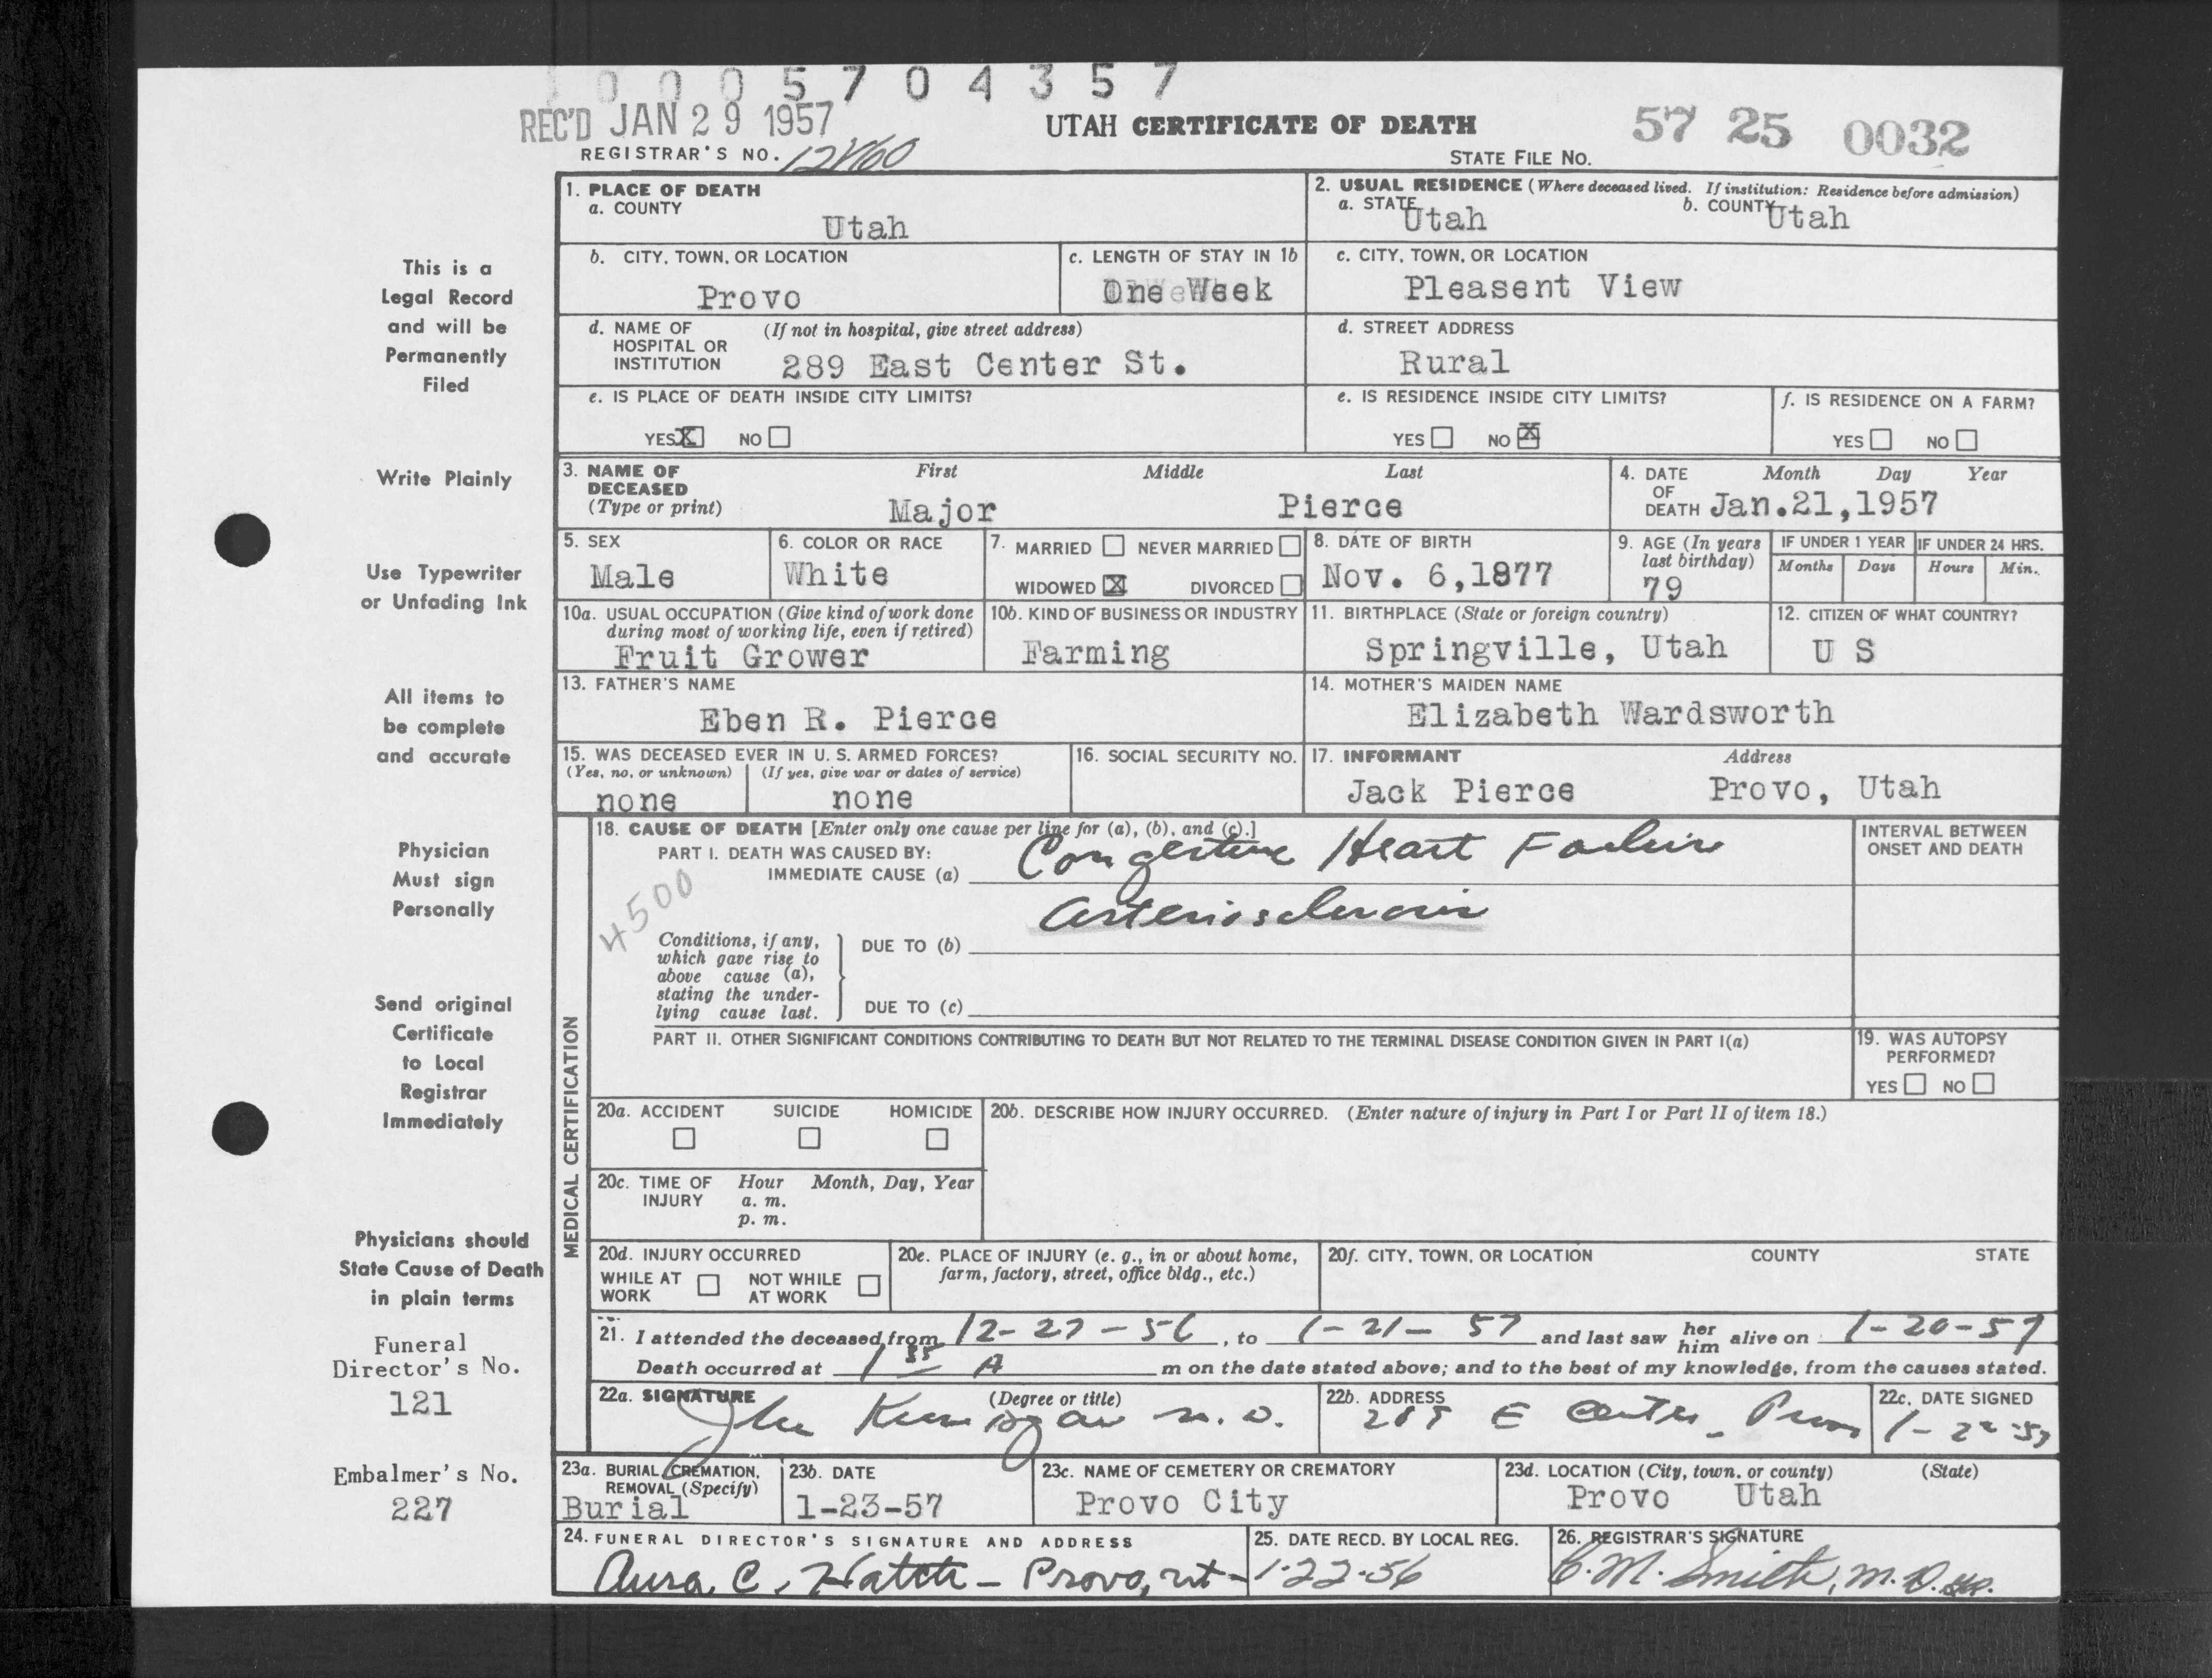 0 0 0 5 7 0 4 3 5 7
REC'D JAN 29 1957
UTAH CERTIFICATE OF DEATH
57 25 0032
REGISTRAR'S NO.
STATE FILE NO.
This is a
Legal Record
and will be
Permanently
Filed
Write Plainly
Use Typewriter
or Unfading Ink
All items to
be complete
and accurate
Physician
Must sign
Personally
Send original
Certificate
to Local
Registrar
Immediately
Physicians should
State Cause of Death
in plain terms
Funeral
Director's No.
121
Embalmer's No.
227
1. PLACE OF DEATH
a. COUNTY
Utah
2. USUAL RESIDENCE (Where deceased lived. If institution: Residence before admission)
a. STATE Utah b. COUNTY Utah
b. CITY, TOWN, OR LOCATION
Provo
c. LENGTH OF STAY IN 1b
One Week
c. CITY, TOWN, OR LOCATION
Pleasent View
d. NAME OF (If not in hospital, give street address)
HOSPITAL OR
INSTITUTION 289 East Center St.
d. STREET ADDRESS
Rural
e. IS PLACE OF DEATH INSIDE CITY LIMITS?
YES X NO
e. IS RESIDENCE INSIDE CITY LIMITS?
YES NO X
f. IS RESIDENCE ON A FARM?
YES NO
3. NAME OF DECEASED (Type or print)
First Middle Last
Major Pierce
4. DATE OF DEATH Month Day Year
Jan.21,1957
5. SEX
Male
6. COLOR OR RACE
White
7. MARRIED NEVER MARRIED
WIDOWED X DIVORCED
8. DATE OF BIRTH
Nov. 6,1877
9. AGE (In years last birthday)
79
IF UNDER 1 YEAR IF UNDER 24 HRS.
Months Days Hours Min.
10a. USUAL OCCUPATION (Give kind of work done
during most of working life, even if retired)
Fruit Grower
10b. KIND OF BUSINESS OR INDUSTRY
Farming
11. BIRTHPLACE (State or foreign country)
Springville, Utah
12. CITIZEN OF WHAT COUNTRY?
U S
13. FATHER'S NAME
Eben R. Pierce
14. MOTHER'S MAIDEN NAME
Elizabeth Wardsworth
15. WAS DECEASED EVER IN U. S. ARMED FORCES?
(Yes, no, or unknown) (If yes, give war or dates of service)
none none
16. SOCIAL SECURITY NO.
17. INFORMANT Address
Jack Pierce Provo, Utah
MEDICAL CERTIFICATION
18. CAUSE OF DEATH [Enter only one cause per line for (a), (b), and (c).]
PART I. DEATH WAS CAUSED BY:
IMMEDIATE CAUSE (a) Congestive Heart Failure
Arteriosclerosis
4500
Conditions, if any,
which gave rise to
above cause (a),
stating the under-
lying cause last.
DUE TO (b)
DUE TO (c)
INTERVAL BETWEEN
ONSET AND DEATH
PART II. OTHER SIGNIFICANT CONDITIONS CONTRIBUTING TO DEATH BUT NOT RELATED TO THE TERMINAL DISEASE CONDITION GIVEN IN PART I(a)
19. WAS AUTOPSY
PERFORMED?
YES NO
20a. ACCIDENT SUICIDE HOMICIDE
20b. DESCRIBE HOW INJURY OCCURRED. (Enter nature of injury in Part I or Part II of item 18.)
20c. TIME OF INJURY Hour Month, Day, Year
a. m.
p. m.
20d. INJURY OCCURRED
WHILE AT WORK NOT WHILE AT WORK
20e. PLACE OF INJURY (e. g., in or about home,
farm, factory, street, office bldg., etc.)
20f. CITY, TOWN, OR LOCATION COUNTY STATE
21. I attended the deceased from 12-27-56, to 1-21-57 and last saw her him alive on 1-20-57
Death occurred at 1 55 A m on the date stated above; and to the best of my knowledge, from the causes stated.
22a. SIGNATURE (Degree or title)
M. D.
22b. ADDRESS
E Center Provo
22c. DATE SIGNED
23a. BURIAL, CREMATION,
REMOVAL (Specify)
Burial
23b. DATE
1-23-57
23c. NAME OF CEMETERY OR CREMATORY
Provo City
23d. LOCATION (City, town, or county) (State)
Provo Utah
24. FUNERAL DIRECTOR'S SIGNATURE AND ADDRESS
C. Hatch - Provo, Ut -
25. DATE RECD. BY LOCAL REG.
1-22-56
26. REGISTRAR'S SIGNATURE
C. M. Smith, M.D.